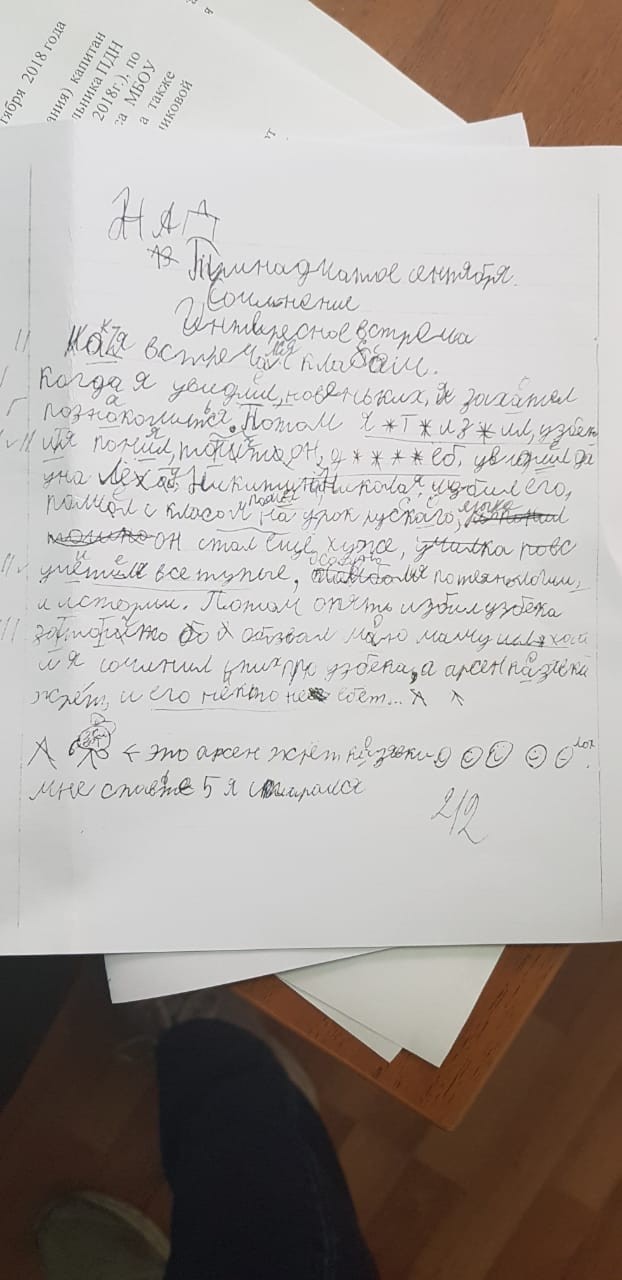 тября 2018 года
ания) капитан
льника ПДН
2018г.), по
са МБОУ
а также
никовой
Н А Д
Принадматое сентября.
Сочиненние
Интвересное встрема
Как я встремал
Когда я увидил, новеньких, я захател
познакомится. Потом я *т*из*ил, узбек
и я понил, что он, д****еб, увидил да
уна Лёха, Никитин, Николая, избил его,
пашол с класом на урок руского,
он стал еще хуже, училка
все тупые, по технологии,
и истории. Потом опять избил узбека
за то что он обзвал маю маму шлюхой
и я сочинил стих про узбека, а арсен казявки
жрёт, и его некто не ебет...
← это арсен жрёт казявки лох
мне ставте 5 я старался
2/2